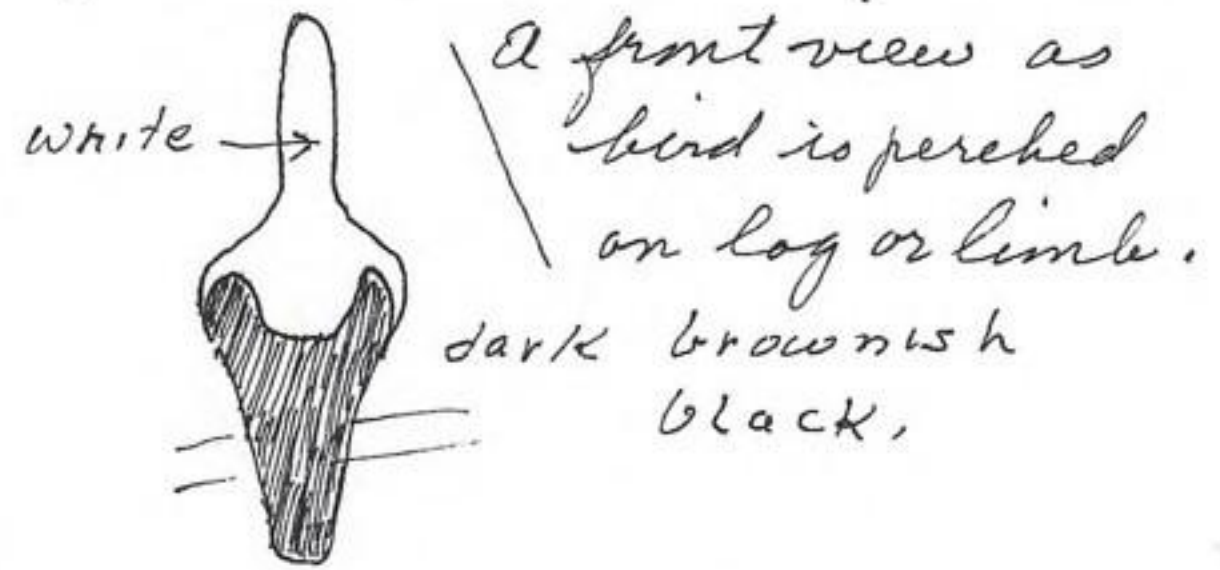 A front view as
white
bird is perched
on log or limb.
dark brownish
black,